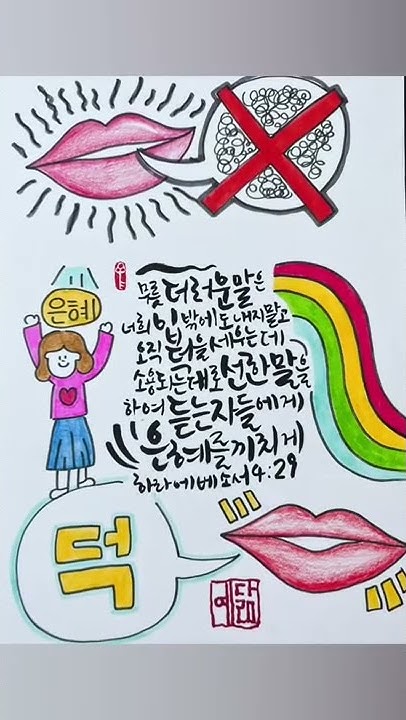 은혜
무릇 더러운 말은
너희 입 밖에도 내지 말고
오직 덕을 세우는 데
소용되는 대로 선한 말을
하여 듣는 자들에게
은혜를 끼치게
하라 에베소서 4:29
덕